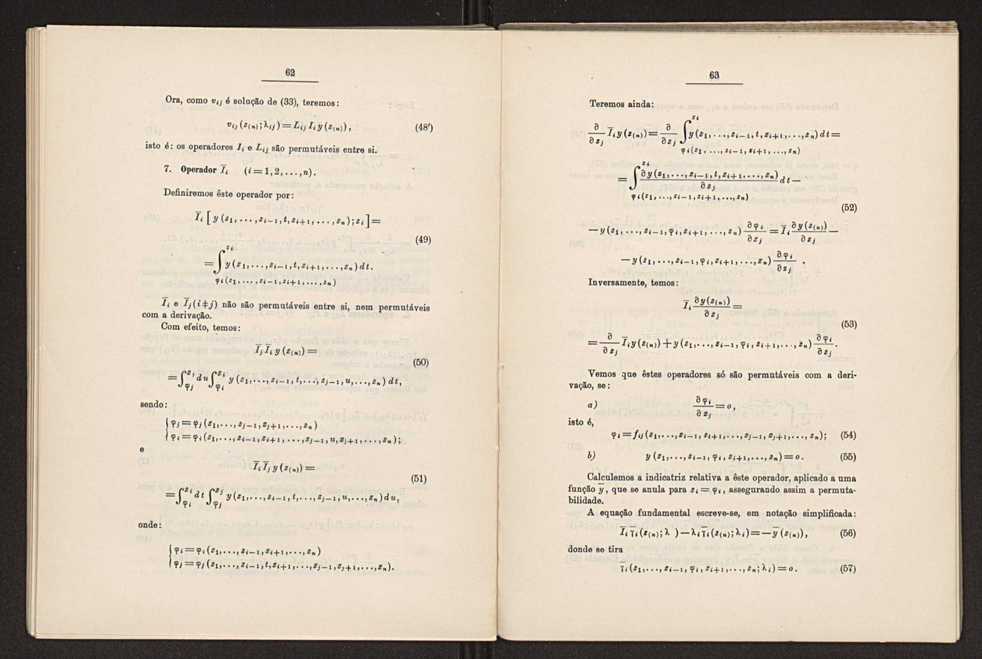 62
Ora, como v_{ij} é solução de (33), teremos:
v_{ij}(z_{(n)}; λ_{ij}) = L_{ij} I_i y(z_{(n)}), (48′)
isto é: os operadores I_i e L_{ij} são permutáveis entre si.
7. Operador Ī_i (i=1,2,...,n).
Definiremos êste operador por:
Ī_i [y(z_1,...,z_{i−1},t,z_{i+1},...,z_n);z_i] =
(49)
= ∫_{φ_i(z_1,...,z_{i−1},z_{i+1},...,z_n)}^{z_i} y(z_1,...,z_{i−1},t,z_{i+1},...,z_n) dt.
Ī_i e Ī_j (i‡j) não são permutáveis entre si, nem permutáveis
com a derivação.
Com efeito, temos:
Ī_j Ī_i y(z_{(n)}) =
(50)
= ∫_{φ_j}^{z_j} du ∫_{φ_i}^{z_i} y(z_1,...,z_{i−1},t,...,z_{j−1},u,...,z_n) dt,
sendo:
{φ_j = φ_j(z_1,...,z_{j−1},z_{j+1},...,z_n)
{φ_i = φ_i(z_1,...,z_{i−1},z_{i+1},...,z_{j−1},u,z_{j+1},...,z_n);
e
Ī_i Ī_j y(z_{(n)}) =
(51)
= ∫_{φ_i}^{z_i} dt ∫_{φ_j}^{z_j} y(z_1,...,z_{i−1},t,...,z_{j−1},u,...,z_n) du,
onde:
{φ_i = φ_i(z_1,...,z_{i−1},z_{i+1},...,z_n)
{φ_j = φ_j(z_1,...,z_{i−1},t,z_{i+1},...,z_{j−1},z_{j+1},...,z_n).
63
Teremos ainda:
∂/∂z_j Ī_i y(z_{(n)}) = ∂/∂z_j ∫_{φ_i(z_1,...,z_{i−1},z_{i+1},...,z_n)}^{z_i} y(z_1,...,z_{i−1},t,z_{i+1},...,z_n) dt =
= ∫_{φ_i(z_1,...,z_{i−1},z_{i+1},...,z_n)}^{z_i} ∂y(z_1,...,z_{i−1},t,z_{i+1},...,z_n)/∂z_j dt −
(52)
− y(z_1,...,z_{i−1},φ_i,z_{i+1},...,z_n) ∂φ_i/∂z_j = Ī_i ∂y(z_{(n)})/∂z_j −
− y(z_1,...,z_{i−1},φ_i,z_{i+1},...,z_n) ∂φ_i/∂z_j .
Inversamente, temos:
Ī_i ∂y(z_{(n)})/∂z_j =
(53)
= ∂/∂z_j Ī_i y(z_{(n)}) + y(z_1,...,z_{i−1},φ_i,z_{i+1},...,z_n) ∂φ_i/∂z_j.
Vemos que êstes operadores só são permutáveis com a deri-
vação, se:
a) ∂φ_i/∂z_j = o,
isto é,
φ_i = f_{ij}(z_1,...,z_{i−1},z_{i+1},...,z_{j−1},z_{j+1},...,z_n); (54)
b) y(z_1,...,z_{i−1},φ_i,z_{i+1},...,z_n) = o. (55)
Calculemos a indicatriz relativa a êste operador, aplicado a uma
função ȳ, que se anula para z_i = φ_i, assegurando assim a permuta-
bilidade.
A equação fundamental escreve-se, em notação simplificada:
Ī_i ῑ_i(z_{(n)}; λ ) − λ_i ῑ_i(z_{(n)}; λ_i) = − ȳ(z_{(n)}), (56)
donde se tira
ῑ_i(z_1,...,z_{i−1},φ_i,z_{i+1},...,z_n; λ_i) = o. (57)